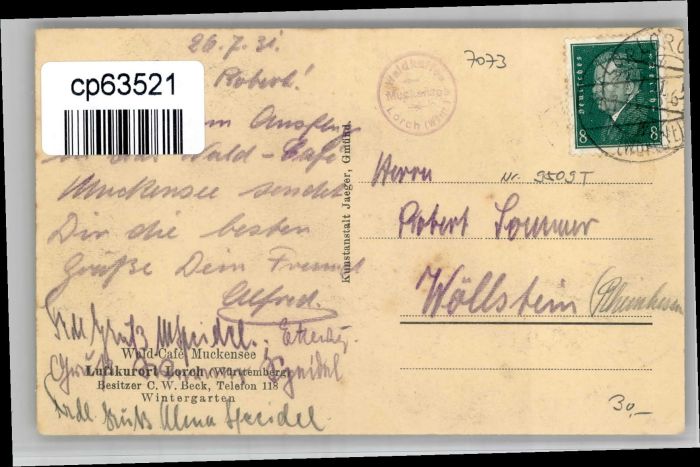 26.7.31.
cp63521
Robert!
Ausflug
Wald-Café
Muckensee sendet
Dir die besten
Grüße Dein Freund
Alfred.
Frdl Gruß Speidel.
Speidel
Frdl Gruß Alma Speidel
Wald-Café Muckensee
Luftkurort Lorch (Württemberg)
Besitzer C. W. Beck, Telefon 118
Wintergarten
Kunstanstalt Jaeger, Gmünd.
Waldkaffee
Muckensee
Lorch (Wttn.)
7073
Deutsches Reich
8 8
LORCH
Herrn
Nr. 9509T
Robert Sommer
Wöllstein (Rheinhessen
30,-